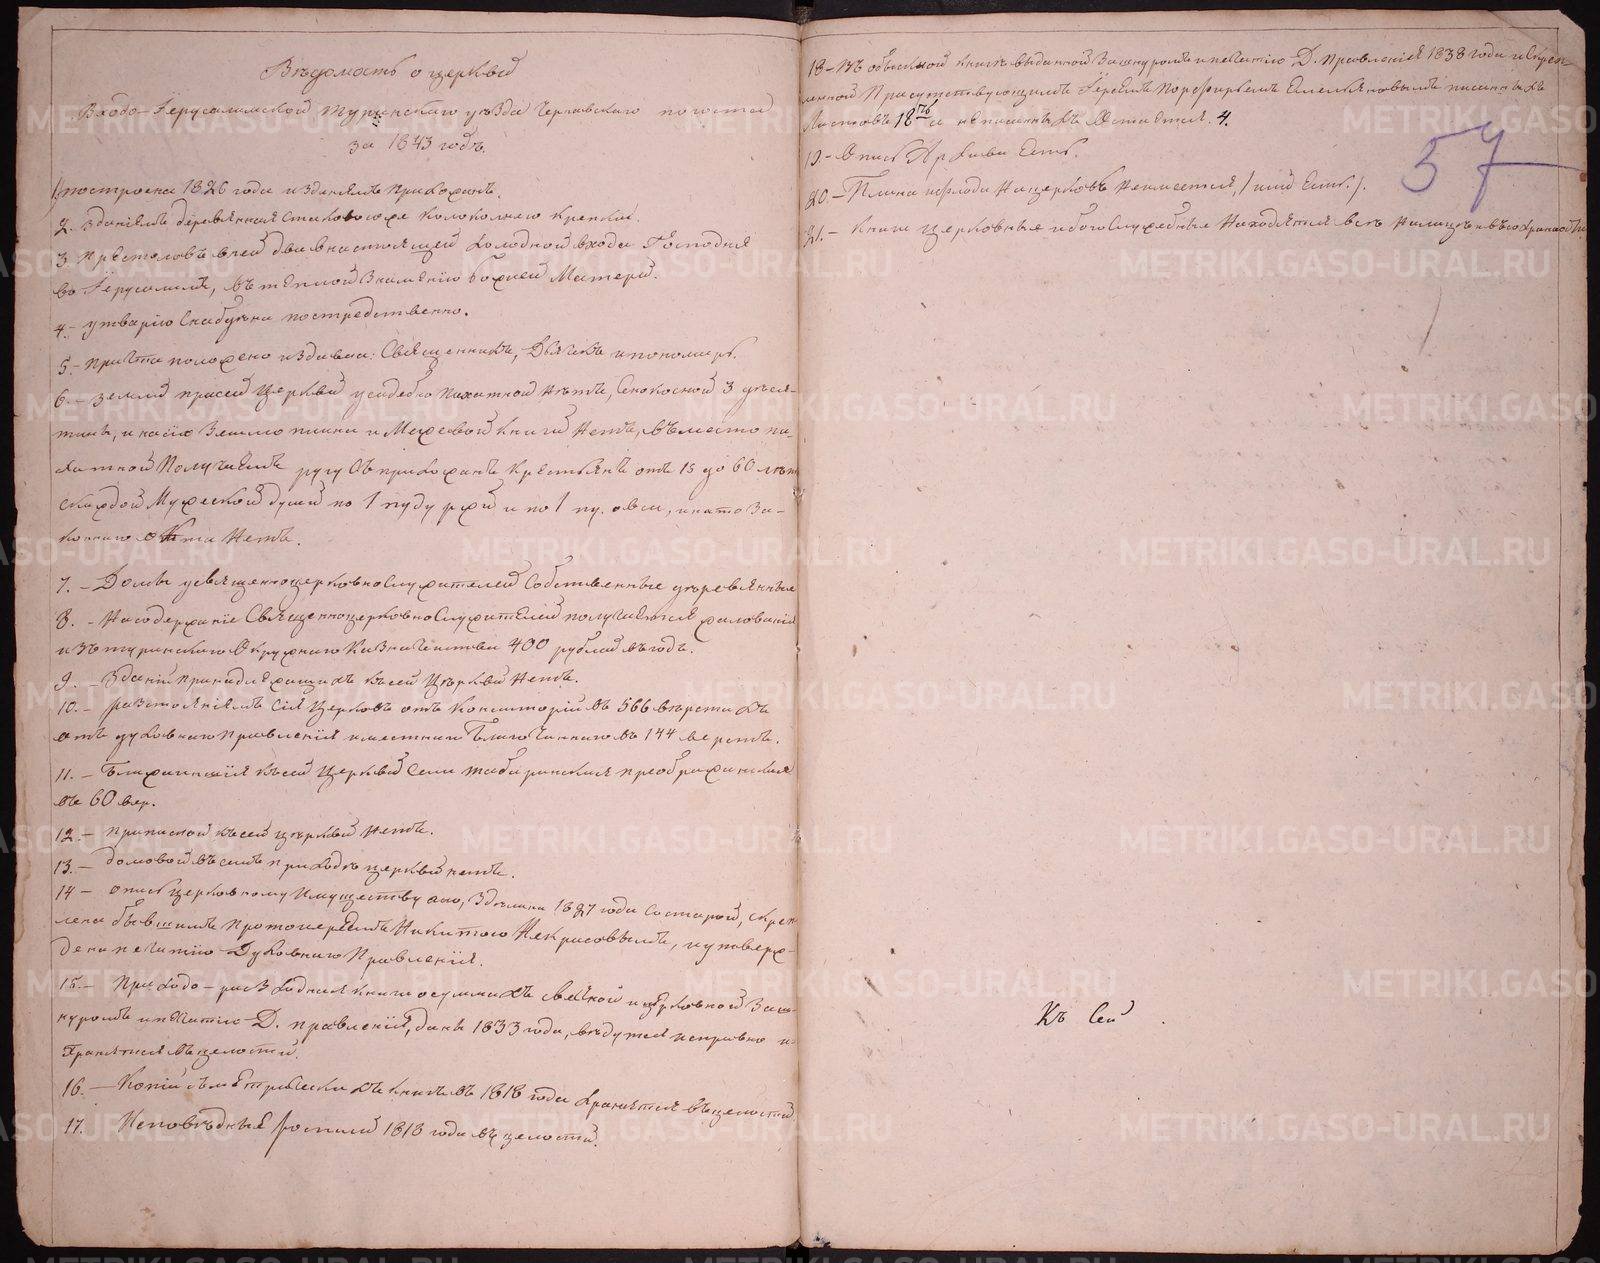 Вѣдомость о церквй
Входо-Іерусалимской Туринскаго уѣзда Чернавскаго погоста
за 1843 годъ.
1) построена 1826 года изданіемъ прихожанъ.
2. Зданіемъ деревянная стаковоюже колокольнею крепкаи.
3. Престоловъ вней два внастоящей холодной входа Господня
во Іерусалимъ, вътеплой Знаменію Божіей Матери.
4.- утварію снабдена посредственно.
5.- Причта положено издавна: Священникъ, Дьячекъ ипономарь.
6.- Земли присей Церквй усадебно Пахатной нѣтъ, Сенокосной 3 десят-
тины, и насію Землю плана и Межевой книги Нетъ, вместо па-
хатной Получаемъ ругу съ прихожанъ крестьянъ отъ 15 до 60 лѣтъ
скаждой Мужеской души по 1 пуду ржи и по 1 пу. овса, и нато За-
коннаго акта Нетъ.
7. - Домы усвященноцерковнослужителей собственные деревянные
8. - Насодержаніе Священноцерковнослужителей получается жалованія
изъ туринскаго Окружнаго Казначейства 400 рублей въгодъ.
9. - Зданій принадлежащихъ къ сей Церквй Нетъ.
10. - разстояніемъ сія Церковь отъ Консисторіи въ 566 верстахъ
отъ духовнаго Правленія и местнаго Благочиннаго въ 144 верстъ.
11. - Ближайшая къ сей Церквй Села табаринскаго преображенская
въ 60 вер.
12. - приписной къ сей церквй нетъ.
13. - домовой въ семъ приходѣ церквй нетъ.
14 - опись церковному Имуществу, Зделана 1827 года Состарой, скреп-
лена бывшимъ Протоиереемъ Никитою Некрасовымъ, и утверж-
дена печатію Духовнаго Правленія.
15. - Приходо-расходная книги осуммахъ свечной и церковной Зашну-
нуромъ и печатію Д. правленія, даны 1833 года, ведутся исправно и
Хранятся въ целости.
16. - Копіи съ метрическихъ книгъ въ 1818 года хранятся въ целости
17. Исповѣдные росписи 1818 года въ целости.
18 - Въ обыскной книгѣ выданной Зашнуромъ и печатію Д. Правленія 1838 года и скреп-
ленной Присутствующимъ Іереемъ Порфирьемъ Емельяновымъ писанныхъ
Листовъ 18ть а неписанныхъ Остается. 4.
19. - Опись Архива Есть.
20. - Плана ифасада на церковь Неимеется, / Есть. /.
21. - Книги церковные и богослужебные Находятся весь налицо ивъсохранности
57
Къ Сей